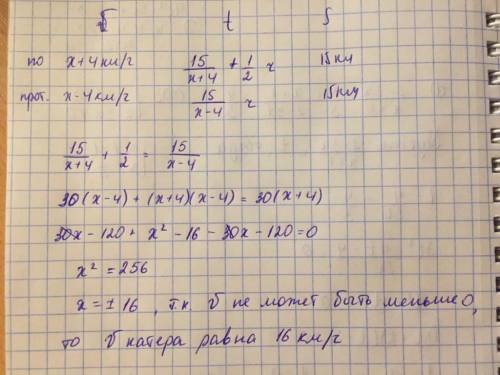 υ t S
по x+4 км/г 15/(x+4) + 1/2 ч 15км
прот. x-4 км/г 15/(x-4) ч 15км
15/(x+4) + 1/2 = 15/(x-4)
30(x-4) + (x+4)(x-4) = 30(x+4)
30x - 120 + x² - 16 - 30x - 120 = 0
x² = 256
x = ± 16 , т.к. υ не может быть меньше 0,
то υ катера равна 16 км/г